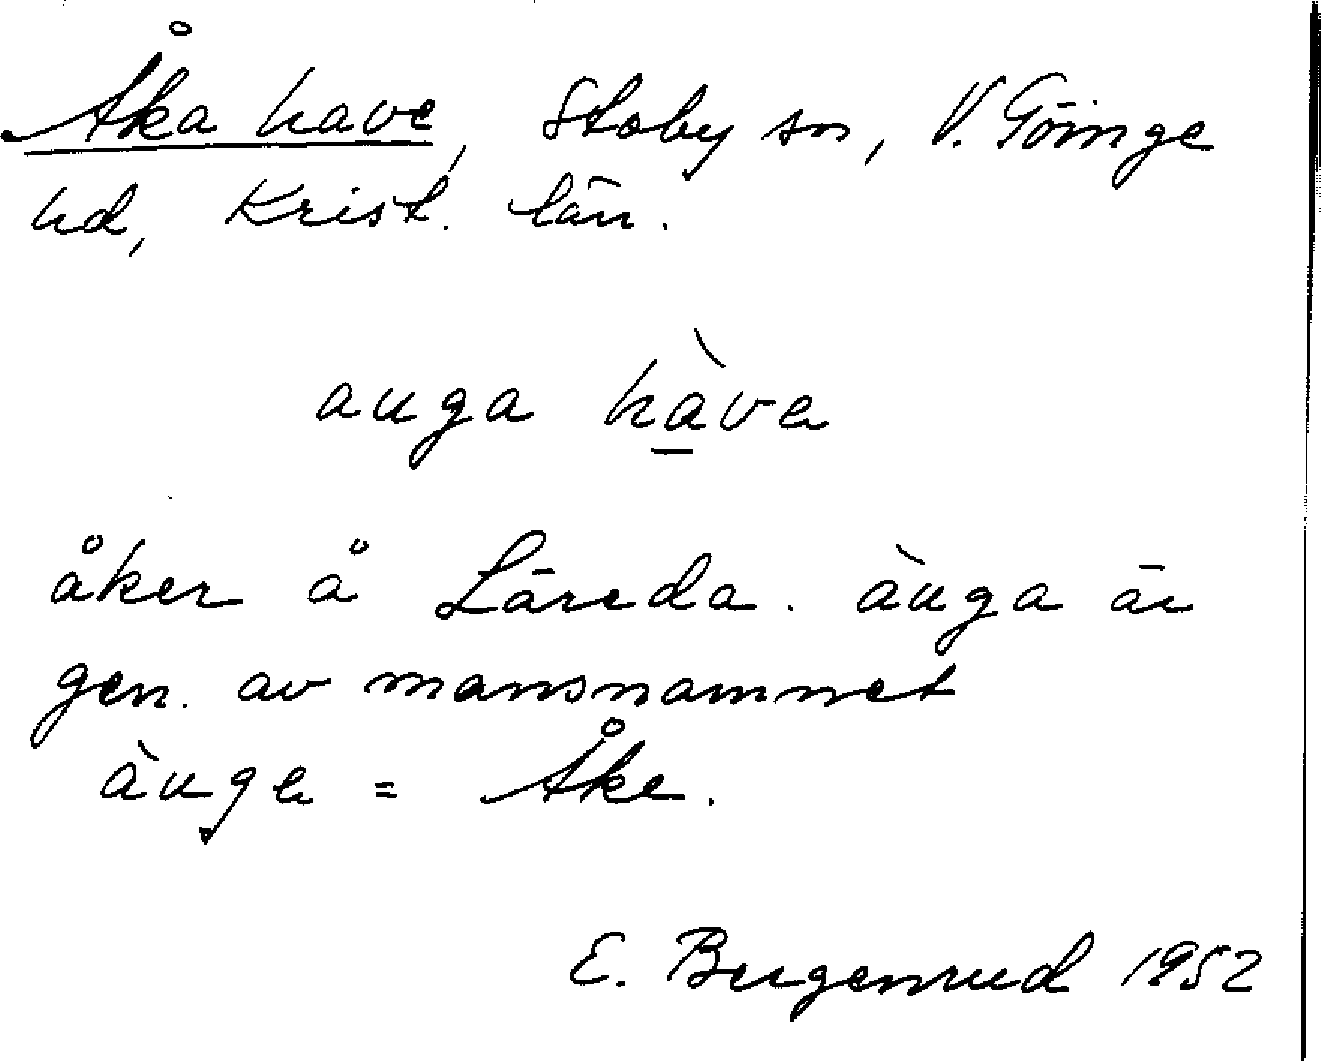 Åka have, Stoby sn, V. Göinge
hd, Krist. län.
auga hàva
åker å Läreda. àuga är
gen. av mansnamnet
àuga = Åke.
E. Bergenrud 1952